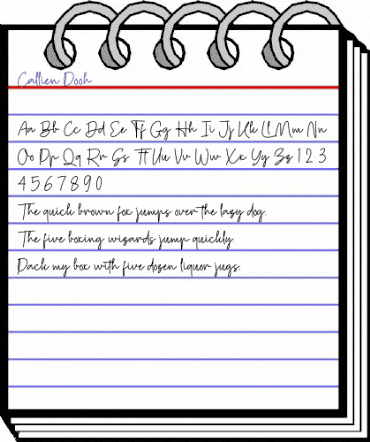 Callien Dooh
Aa Bb Cc Dd Ee Ff Gg Hh Ii Jj Kk Ll Mm Nn
Oo Pp Qq Rr Ss Tt Uu Vv Ww Xx Yy Zz 1 2 3
4 5 6 7 8 9 0
The quick brown fox jumps over the lazy dog.
The five boxing wizards jump quickly.
Pack my box with five dozen liquor jugs.